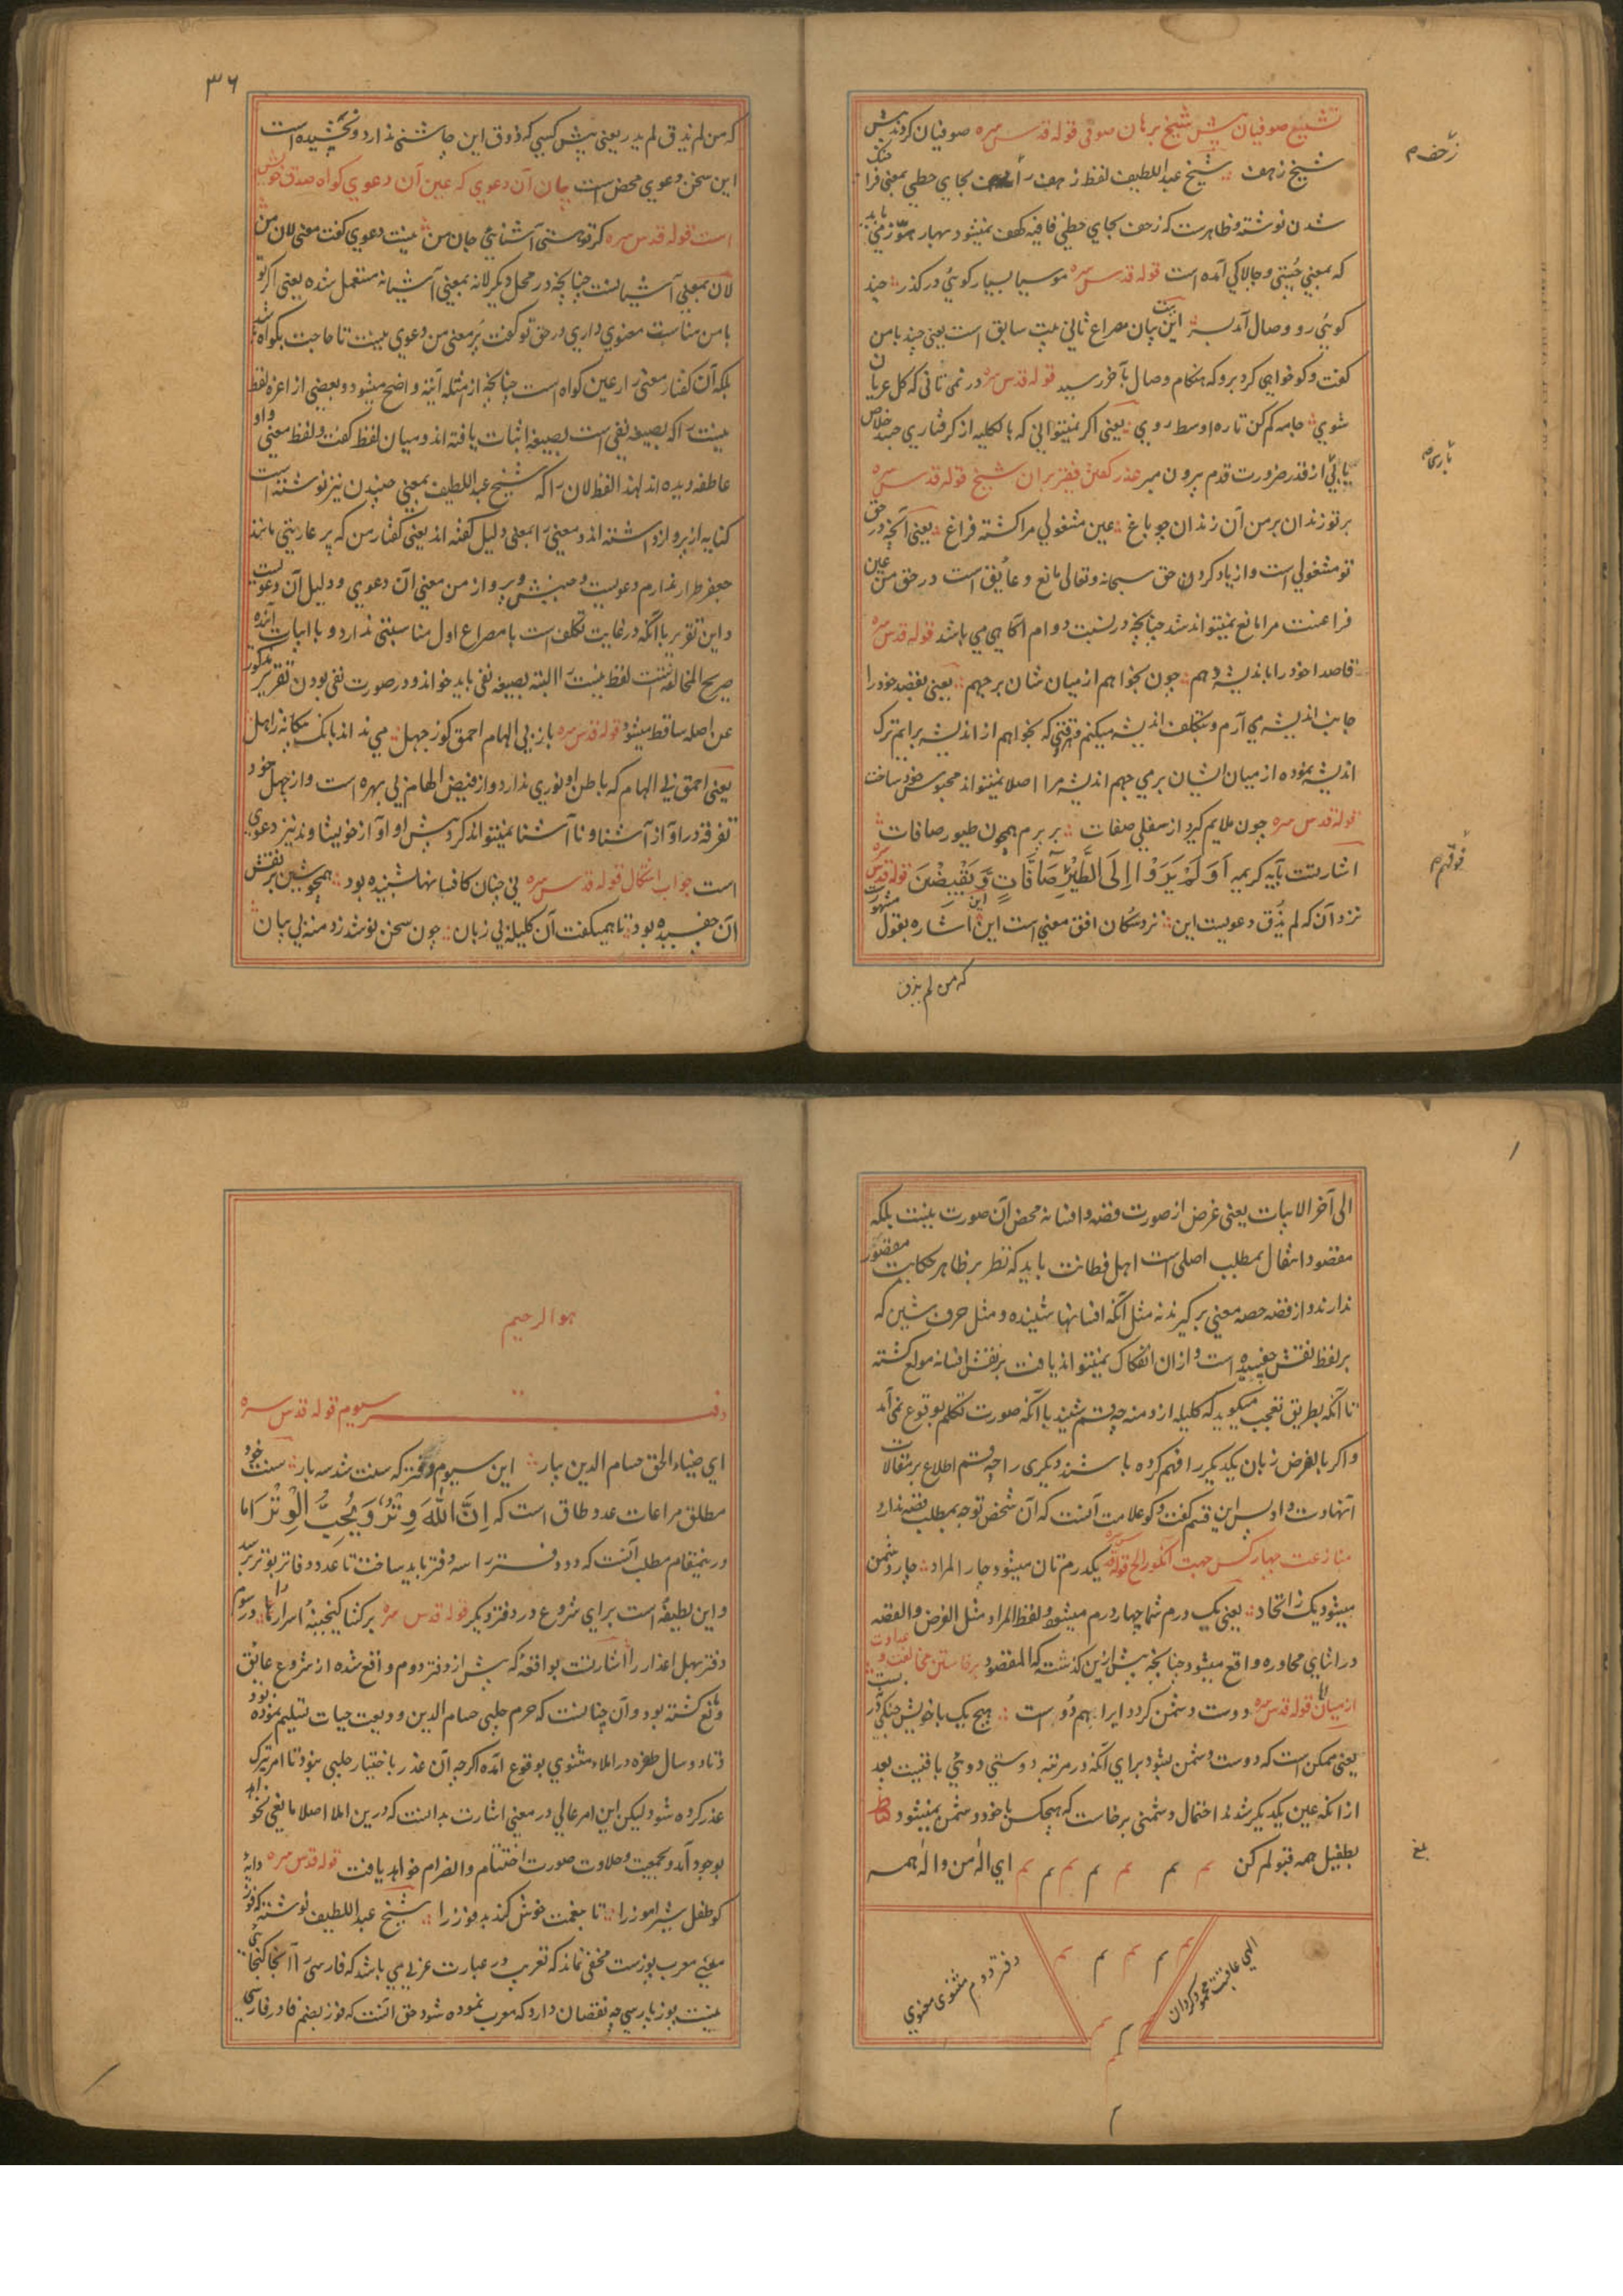 تشنیع صوفیان پیش شیخ بر آن صوفی قوله قدس سره صوفیان کردند پیش
شیخ زحف شیخ عبداللطیف لفظ زحف را بجای حطی بمعنی فرا
شدن نوشته و ظاهرست که زحف بجای حطی قافیه کهف نمیشود
که بمعنی چستی و چالاکی آمده است قوله قدس سره موسیا بسیار گوئی در گذر چند
گوئی رو وصال آمد بسر این بیت بیان مصراع ثانی بیت سابق است یعنی چند با من
گفت و گو خواهی کرد برو که هنگام وصال بآخر رسید قوله قدس سره ور نمی تانی که کل عریان
شوی جامه کم کن تا ره اوسط روی یعنی اگر نمیتوانی که بالکلیه از گرفتاری جسد خلاص
یابی از قدر ضرورت قدم برون مبر عذر گفتن فقیر بر آن شیخ قوله قدس سره
بر تو زندان بر من آن زندان چو باغ عین مشغولی مرا گشته فراغ یعنی آنچه در حق
تو مشغولی است و از یاد کردن حق سبحانه و تعالی مانع و عایق است در حق من عین
فراغست مرا مانع نمیتواند شد چنانچه در نسبت دوام آگاهی می باشد قوله قدس سره
قاصدا خود را باندیشه دهم چون بخواهم از میان شان بر جهم یعنی بقصد خود را
جانب اندیشه می آرم و بتکلف اندیشه میکنم وقتی که بخواهم از اندیشه برایم ترک
اندیشه نموده از میان ایشان بر می جهم اندیشه مرا اصلا نمیتواند محبوس خود ساخت
قوله قدس سره چون ملالم گیرد از سفلی صفات بر برم همچون طیور صافات
اشارتست بآیه کریمه اَوَلَمْ یَرَوْا اِلَی الطَّیْرِ صَافَّاتٍ وَّیَقْبِضْنَ قوله قدس سره
نزد آن که لم یذق دعویست این نزد سکان افق معنی است این اشاره بقول مشهور
که من لم یذق
۳۶
که من لم یذق لم یدر یعنی پیش کسی که ذوق این چاشنی ندارد و نچشیده است
این سخن دعوی محض است بیان آن دعوی که عین آن دعوی گواه صدق خویش
است قوله قدس سره گر تو هستی آشنای جان من نیست دعوی گفت معنی لان من
لان بمعنی آشیانست چنانچه در محل دیگر لانه بمعنی آشیانه مستعمل شده یعنی اگر تو
با من مناسبت معنوی داری در حق تو گفت پر معنی من دعوی نیست تا حاجت بگواه باشد
بلکه آن گفتار معنی دار عین گواه است چنانچه از امثله آتیه واضح میشود و بعضی از اعزه لفظ
نیست را که بصیغه نفی است بصیغه اثبات یافته اند و میان لفظ گفت و لفظ معنی واو
عاطفه دیده اند لهذا لفظ لان را که شیخ عبداللطیف بمعنی جنبیدن نیز نوشته است
کنایه از پرواز داشته اند و معنی را بمعنی دلیل گفته اند یعنی گفتار من که پر عاریتی مانند
جعفر طرار ندارم دعویست و جنبش و پرواز من معنی آن دعوی و دلیل آن دعویست
و این تقریر با آنکه در غایت تکلف است با مصراع اول مناسبتی ندارد و با ابیات آینده
صریح المخالفه است لفظ نیست را البته بصیغه نفی باید خواند و در صورت نفی بودن تقریر مذکور
عن اصله ساقط میشود قوله قدس سره باز بی الهام احمق کو ز جهل می نداند بانگ بیگانه ز اهل
یعنی احمق بی الهام که باطن او نوری ندارد و از فیض الهام بی بهره است و از جهل خود
تفرقه در آواز آشنا و نا آشنا نمیتواند کرد پیش او آواز خویشاوند نیز دعوی
است جواب اشکال قوله قدس سره نی چنان کافسانها بشنیده بود همچو شین بر نقش
آن چفسیده بود تا همیگفت آن کلیله بی زبان چون سخن نوشد ز دمنه بی بیان
الی آخر الابیات یعنی غرض از صورت قصه و افسانه محض آن صورت نیست بلکه
مقصود انتقال بمطلب اصلی است اهل فطانت باید که نظر بر ظاهر حکایت مقصور
ندارند و از قصه حصه معنی برگیرند نه مثل آنکه افسانها شنیده و مثل حرف شین که
بر لفظ نقش چفسیده است و از ان انفکاک نمیتواند یافت بر نقش افسانه مولع گشته
تا آنکه بطریق تعجب میگوید که کلیله از دمنه چه قسم شنید با آنکه صورت تکلم بوقوع نمی آمد
و اگر بالفرض زبان یکدیگر را فهم کرده باشند دیگری را چه قسم اطلاع بر مقالات
آنها دست داد پس این قسم گفت و گو علامت آنست که آن شخص توجه بمطلب قصه ندارد
منازعت چهار کس جهت انگور الخ قوله قدس سره یکدرم تان میشود چار المراد چار دشمن
میشود یک ز اتحاد یعنی یک درم شما چهار درم میشود و لفظ المراد مثل الغرض و القصه
در اثنای محاوره واقع میشود چنانچه پیش ازین گذشت که المقصود برخاستن مخالفت و عداوت
از میان قوله قدس سره دوست دشمن گردد ایرا هم دو است هیچ یک با خویش جنگی در نبست
یعنی ممکن است که دوست دشمن بشود برای آنکه در مرتبه دوستی دوئی باقیست بعد
از انکه عین یکدیگر شدند احتمال دشمنی برخاست که هیچکس با خود دشمن نمیشود
بطفیل همه قبولم کن م م م م م م م ای اله من و اله همه
الهی عاقبت محمود گردان
دفتر دوم مثنوی معنوی
بلغ
هو الرحیم
دفتر سیوم قوله قدس سره
ای ضیاء الحق حسام الدین بیار این سیوم دفتر که سنت شد سه بار سنت خود
مطلق مراعات عدد طاق است که اِنَّ اللّٰهَ وِتْرٌ وَیُحِبُّ الْوِتْرَ اما
درینمقام مطلب آنست که دو دفتر را سه دفتر باید ساخت تا عدد دفاتر بوتر رسد
و این لطیفه است برای شروع در دفتر دیگر قوله قدس سره بر گشا گنجینه اسرار را در سوم
دفتر بهل اعذار را اشارتست بواقعه که پیش از دفتر دوم واقع شده از شروع عایق
و مانع گشته بود و آن چنانست که حرم چلبی حسام الدین ودیعت حیات تسلیم نموده بود
تا دو سال طفره در املاء مثنوی بوقوع آمده اگرچه آن عذر باختیار چلبی نبود تا امر بترک
عذر کرده شود لیکن این امر عالی در معنی اشارت بدانست که درین املا اصلا مانعی نخواهد
بوجود آمد و بجمعیت و حلاوت صورت اختتام و انصرام خواهد یافت قوله قدس سره دایه
کو طفل شیرآموز را تا بنعمت خوش کند پدفوز را شیخ عبداللطیف نوشته که فوز
معنی معرب پوزست مخفی نماند که تعریب در عبارت عربی می باشد که فارسی را آنجا گنجائی
نیست پوز پارسی چه نقصان دارد که معرب نموده شود حق آنست که فوز بضم فا در فارسی